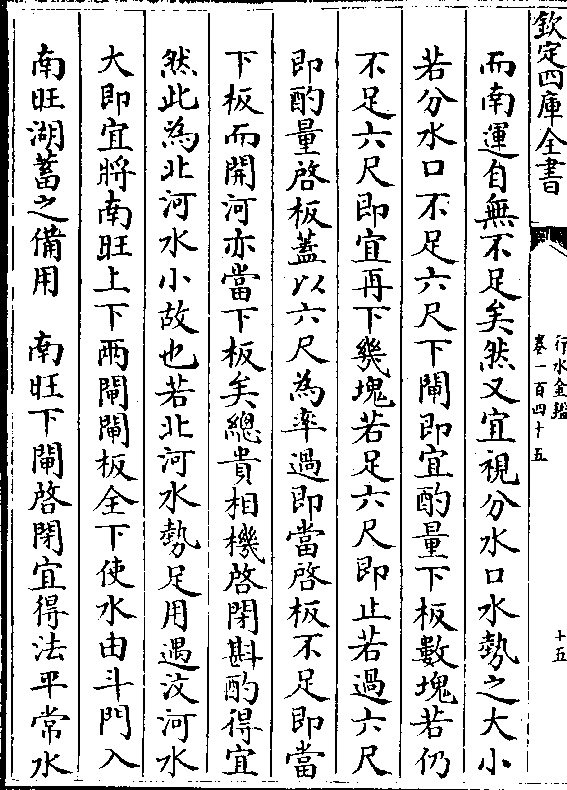 欽定四庫全書
行水金鑑
卷一百四十五
十五
而南運自無不足矣然又宜視分水口水勢之大小
若分水口不足六尺下閘即宜酌量下板數塊若仍
不足六尺即宜再下幾塊若足六尺即止若過六尺
即酌量啓板蓋以六尺為率過即當啓板不足即當
下板而開河亦當下板矣總貴相機啓閉斟酌得宜
然此為北河水小故也若北河水勢足用遇汶河水
大即宜將南旺上下兩閘閘板全下使水由斗門入
南旺湖蓄之備用　南旺下閘啓閉宜得法平常水